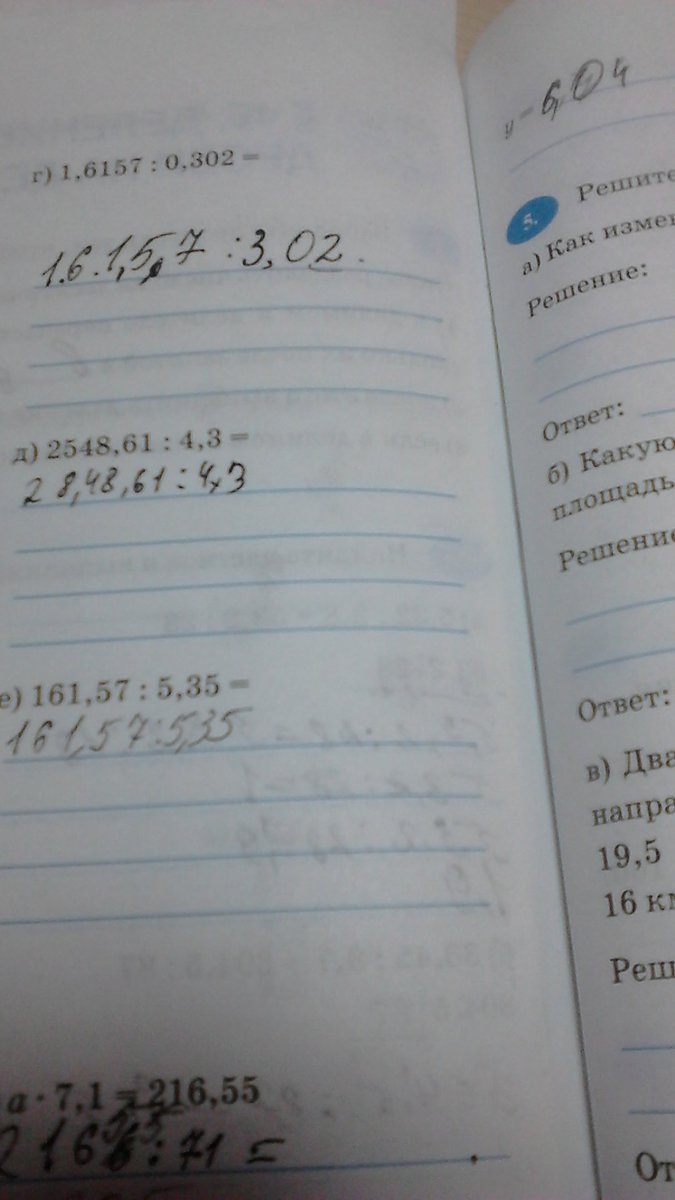 г) 1,6157 : 0,302 =
1.6.1,5,7 : 3,02.
д) 2548,61 : 4,3 =
28,48,61 : 4,3
е) 161,57 : 5,35 =
161,57:5,35
а · 7,1 = 216,55
: 71 =
y = 6,04
5. Решите
а) Как измен
Решение:
Ответ:
б) Какую
площадь
Решение
Ответ:
в) Два
напра
19,5
16 км
Реш
От